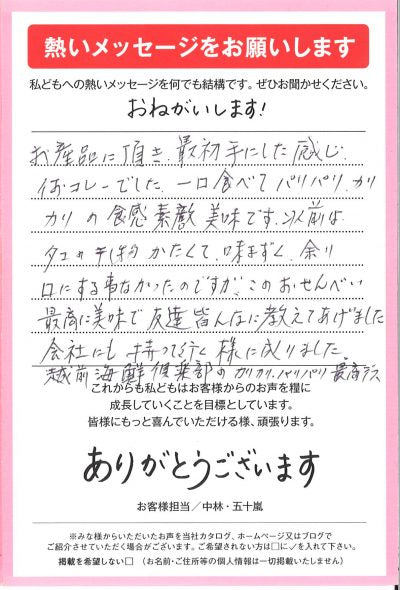 熱いメッセージをお願いします
私どもへの熱いメッセージを何でも結構です。ぜひお聞かせください。
おねがいします!
お産品に頂き、最初手にした感じ、
何コレーでした、一口食べて パリパリ、カリ
カリ の 食感 素敵 美味です。以前は、
タコの かたくて、味まずく、余り
口にする事なかったのですが、このおせんべい
最高に美味で 友達 皆んなに 教えてあげました
会社にも 持って行く 様に成りました。
越前海鮮倶楽部の カリカリ、パリパリ 最高デス
これからも私どもはお客様からのお声を糧に
成長していくことを目標としています。
皆様にもっと喜んでいただける様、頑張ります。
ありがとうございます
お客様担当/中林・五十嵐
※みな様からいただいたお声を当社カタログ、ホームページ又はブログで
ご紹介させていただく場合がございます。ご希望されない方は□に✓を入れて下さい。
掲載を希望しない□ (お名前・ご住所等の個人情報は一切掲載いたしません)